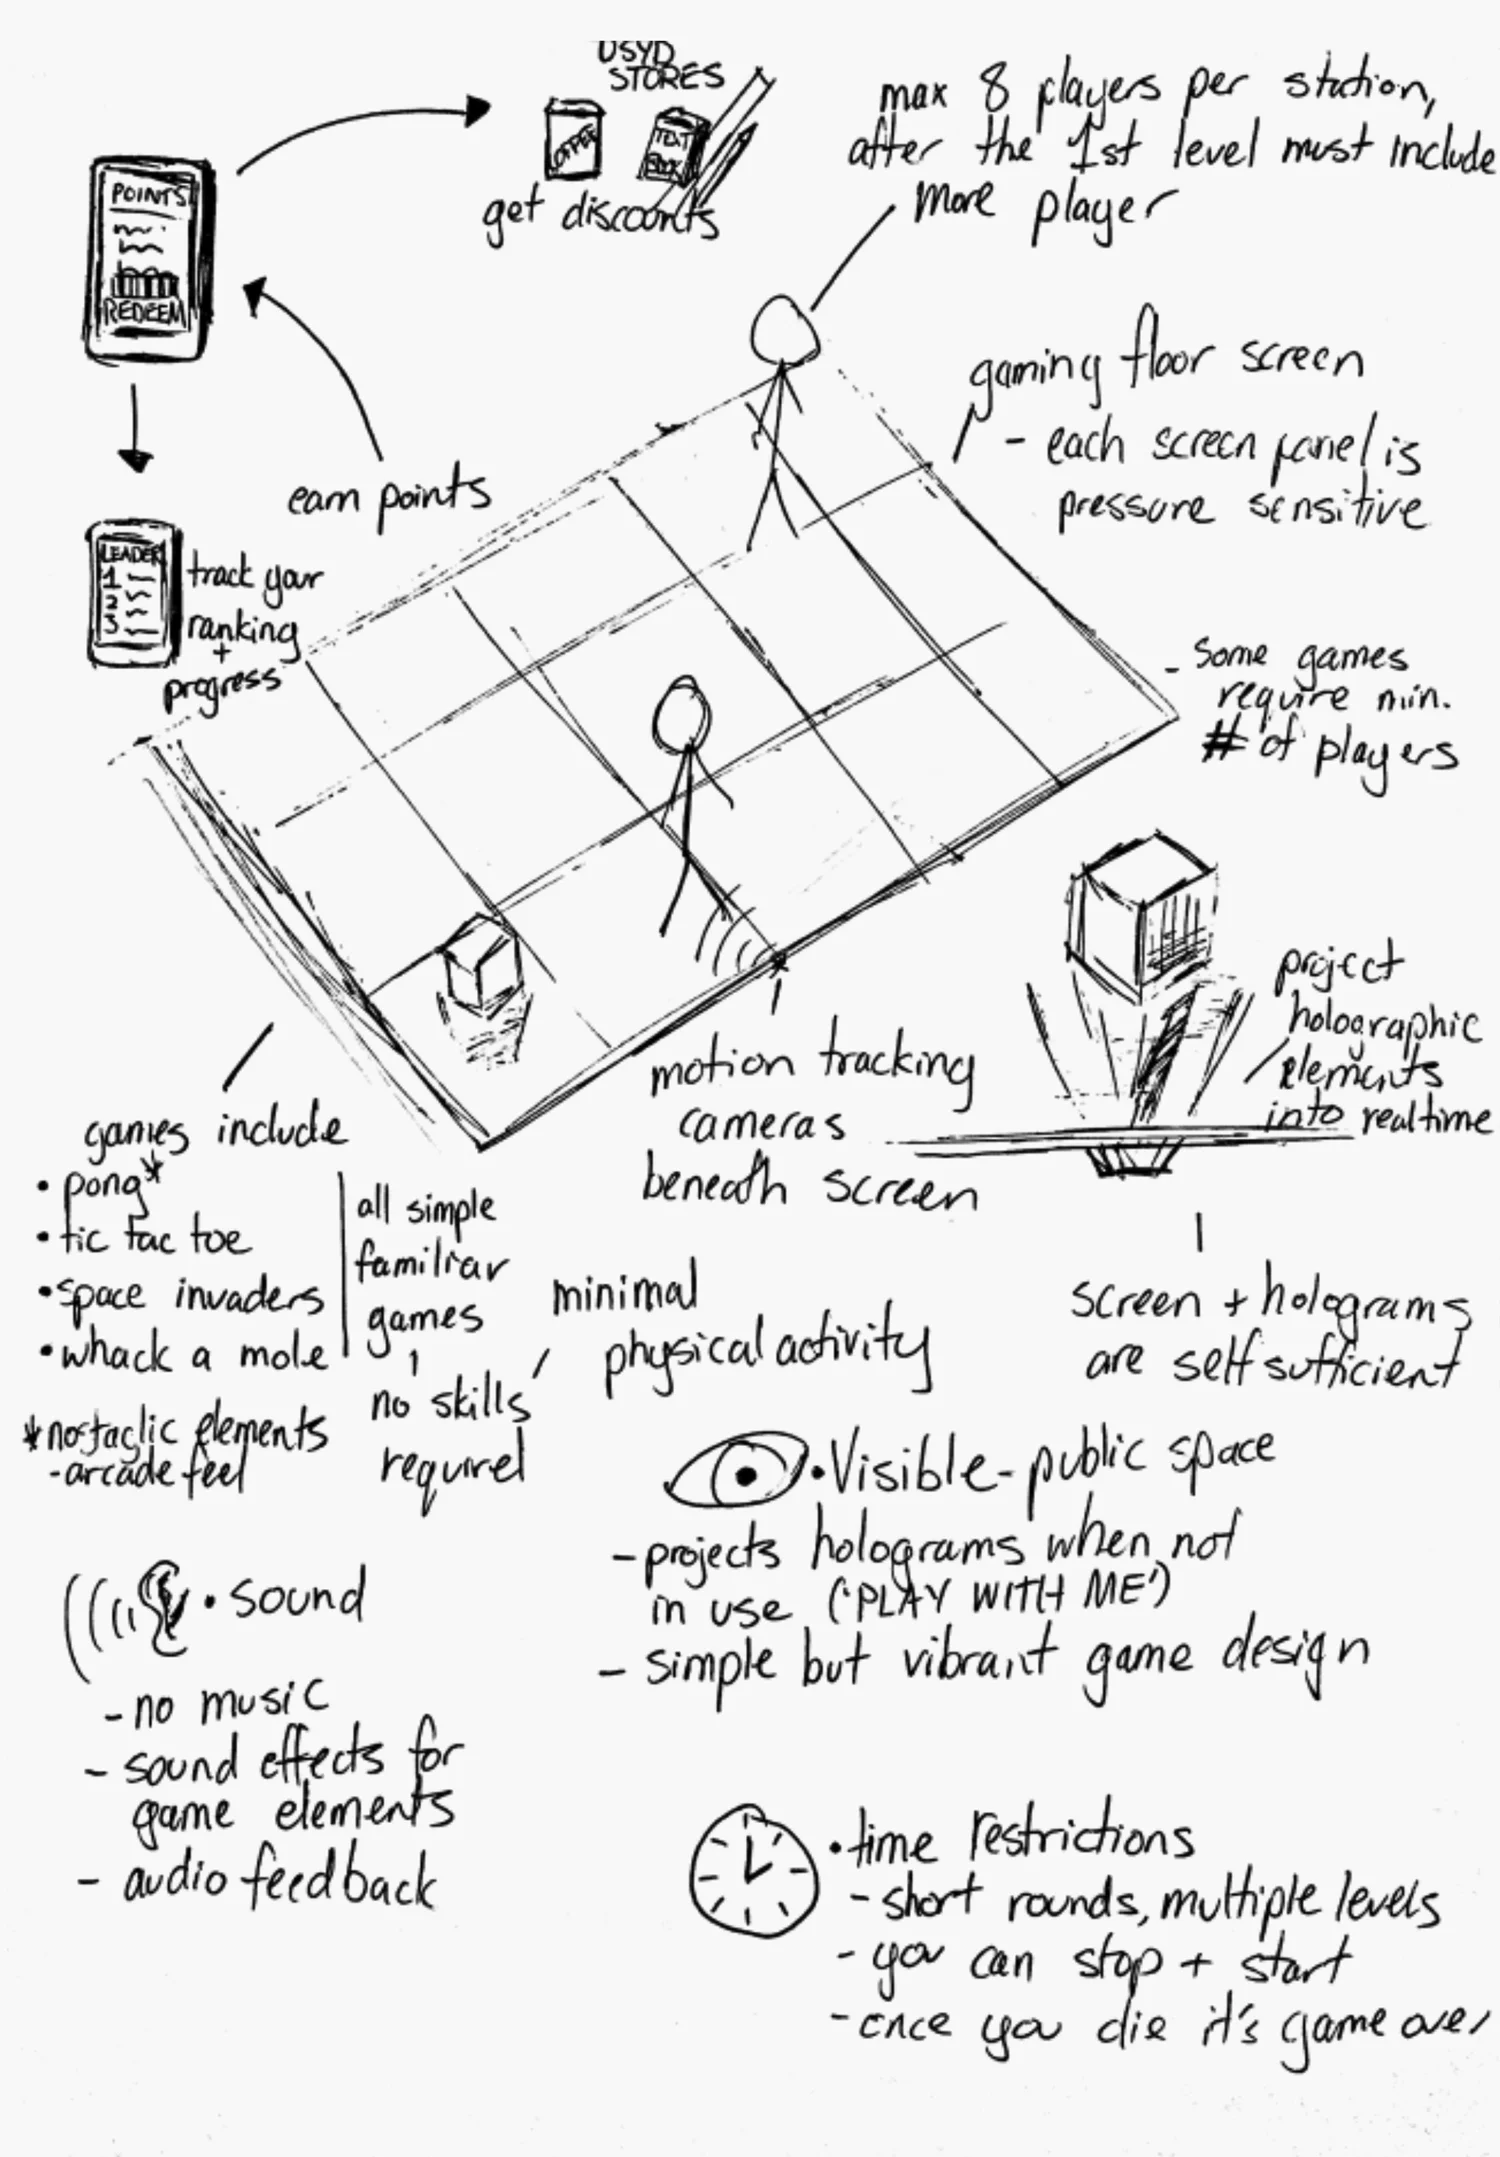 USYD
STORES
COFFEE
TEXT
BOOK
get discounts
POINTS
REDEEM
earn points
LEADER
1
2
3
track your
ranking
+
progress
max 8 players per station,
after the 1st level must include
more player
gaming floor screen
- each screen panel is
pressure sensitive
- Some games
require min.
# of players
project
holographic
elements
into realtime
motion tracking
cameras
beneath screen
screen + holograms
are self sufficient
games include
• pong*
• tic tac toe
• space invaders
• whack a mole
* nostaglic elements
- arcade feel
all simple
familiar
games
no skills
required
minimal
physical activity
• Visible - public space
- projects holograms when not
in use ('PLAY WITH ME')
- simple but vibrant game design
• sound
- no music
- sound effects for
game elements
- audio feedback
• time restrictions
- short rounds, multiple levels
- you can stop + start
- once you die it's game over